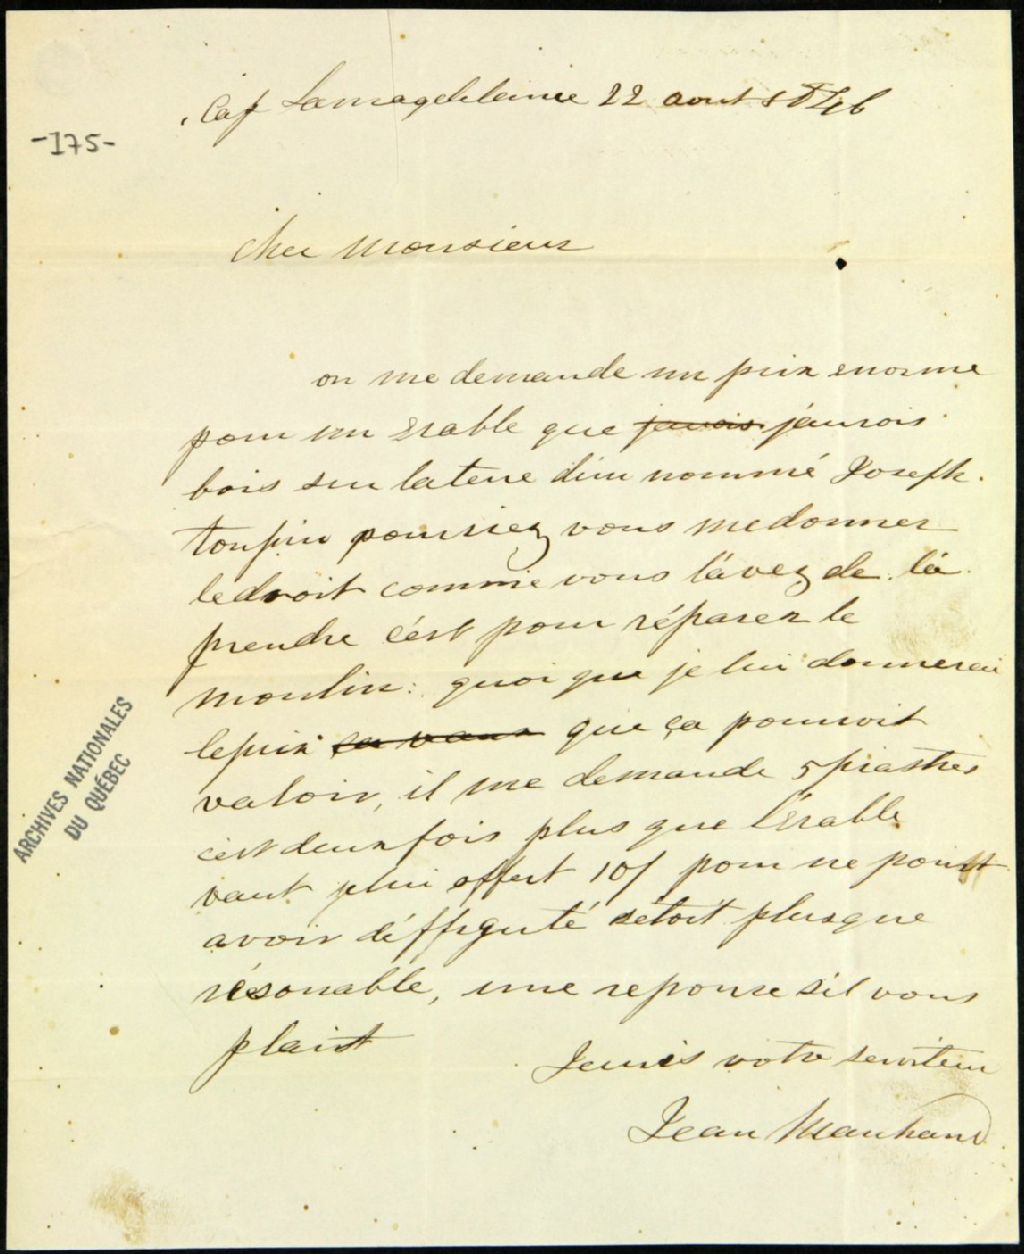 Cap Lamagdelaine 22 aout 1846
-175-
Cher Monsieur
on me demande un prix enorme
pour un Erable que javois jaurois
bois sur laterre d'un nommé Joseph
toupin pourriez vous medonner
ledroit comme vous l'avez de la
prendre c'est pour réparer le
moulin: quoi que je lui donnerai
leprix ça vaux que ça pourroit
valoir, il me demande 5 piastres
c'est deux fois plus que l'Erable
vaut jlui offert 10f pour ne point
avoir déffiguté sétoit plusque
résonable, une reponse sil vous
plaist
Jsuis votre serviteur
Jean Marchand
ARCHIVES NATIONALES
DU QUÉBEC